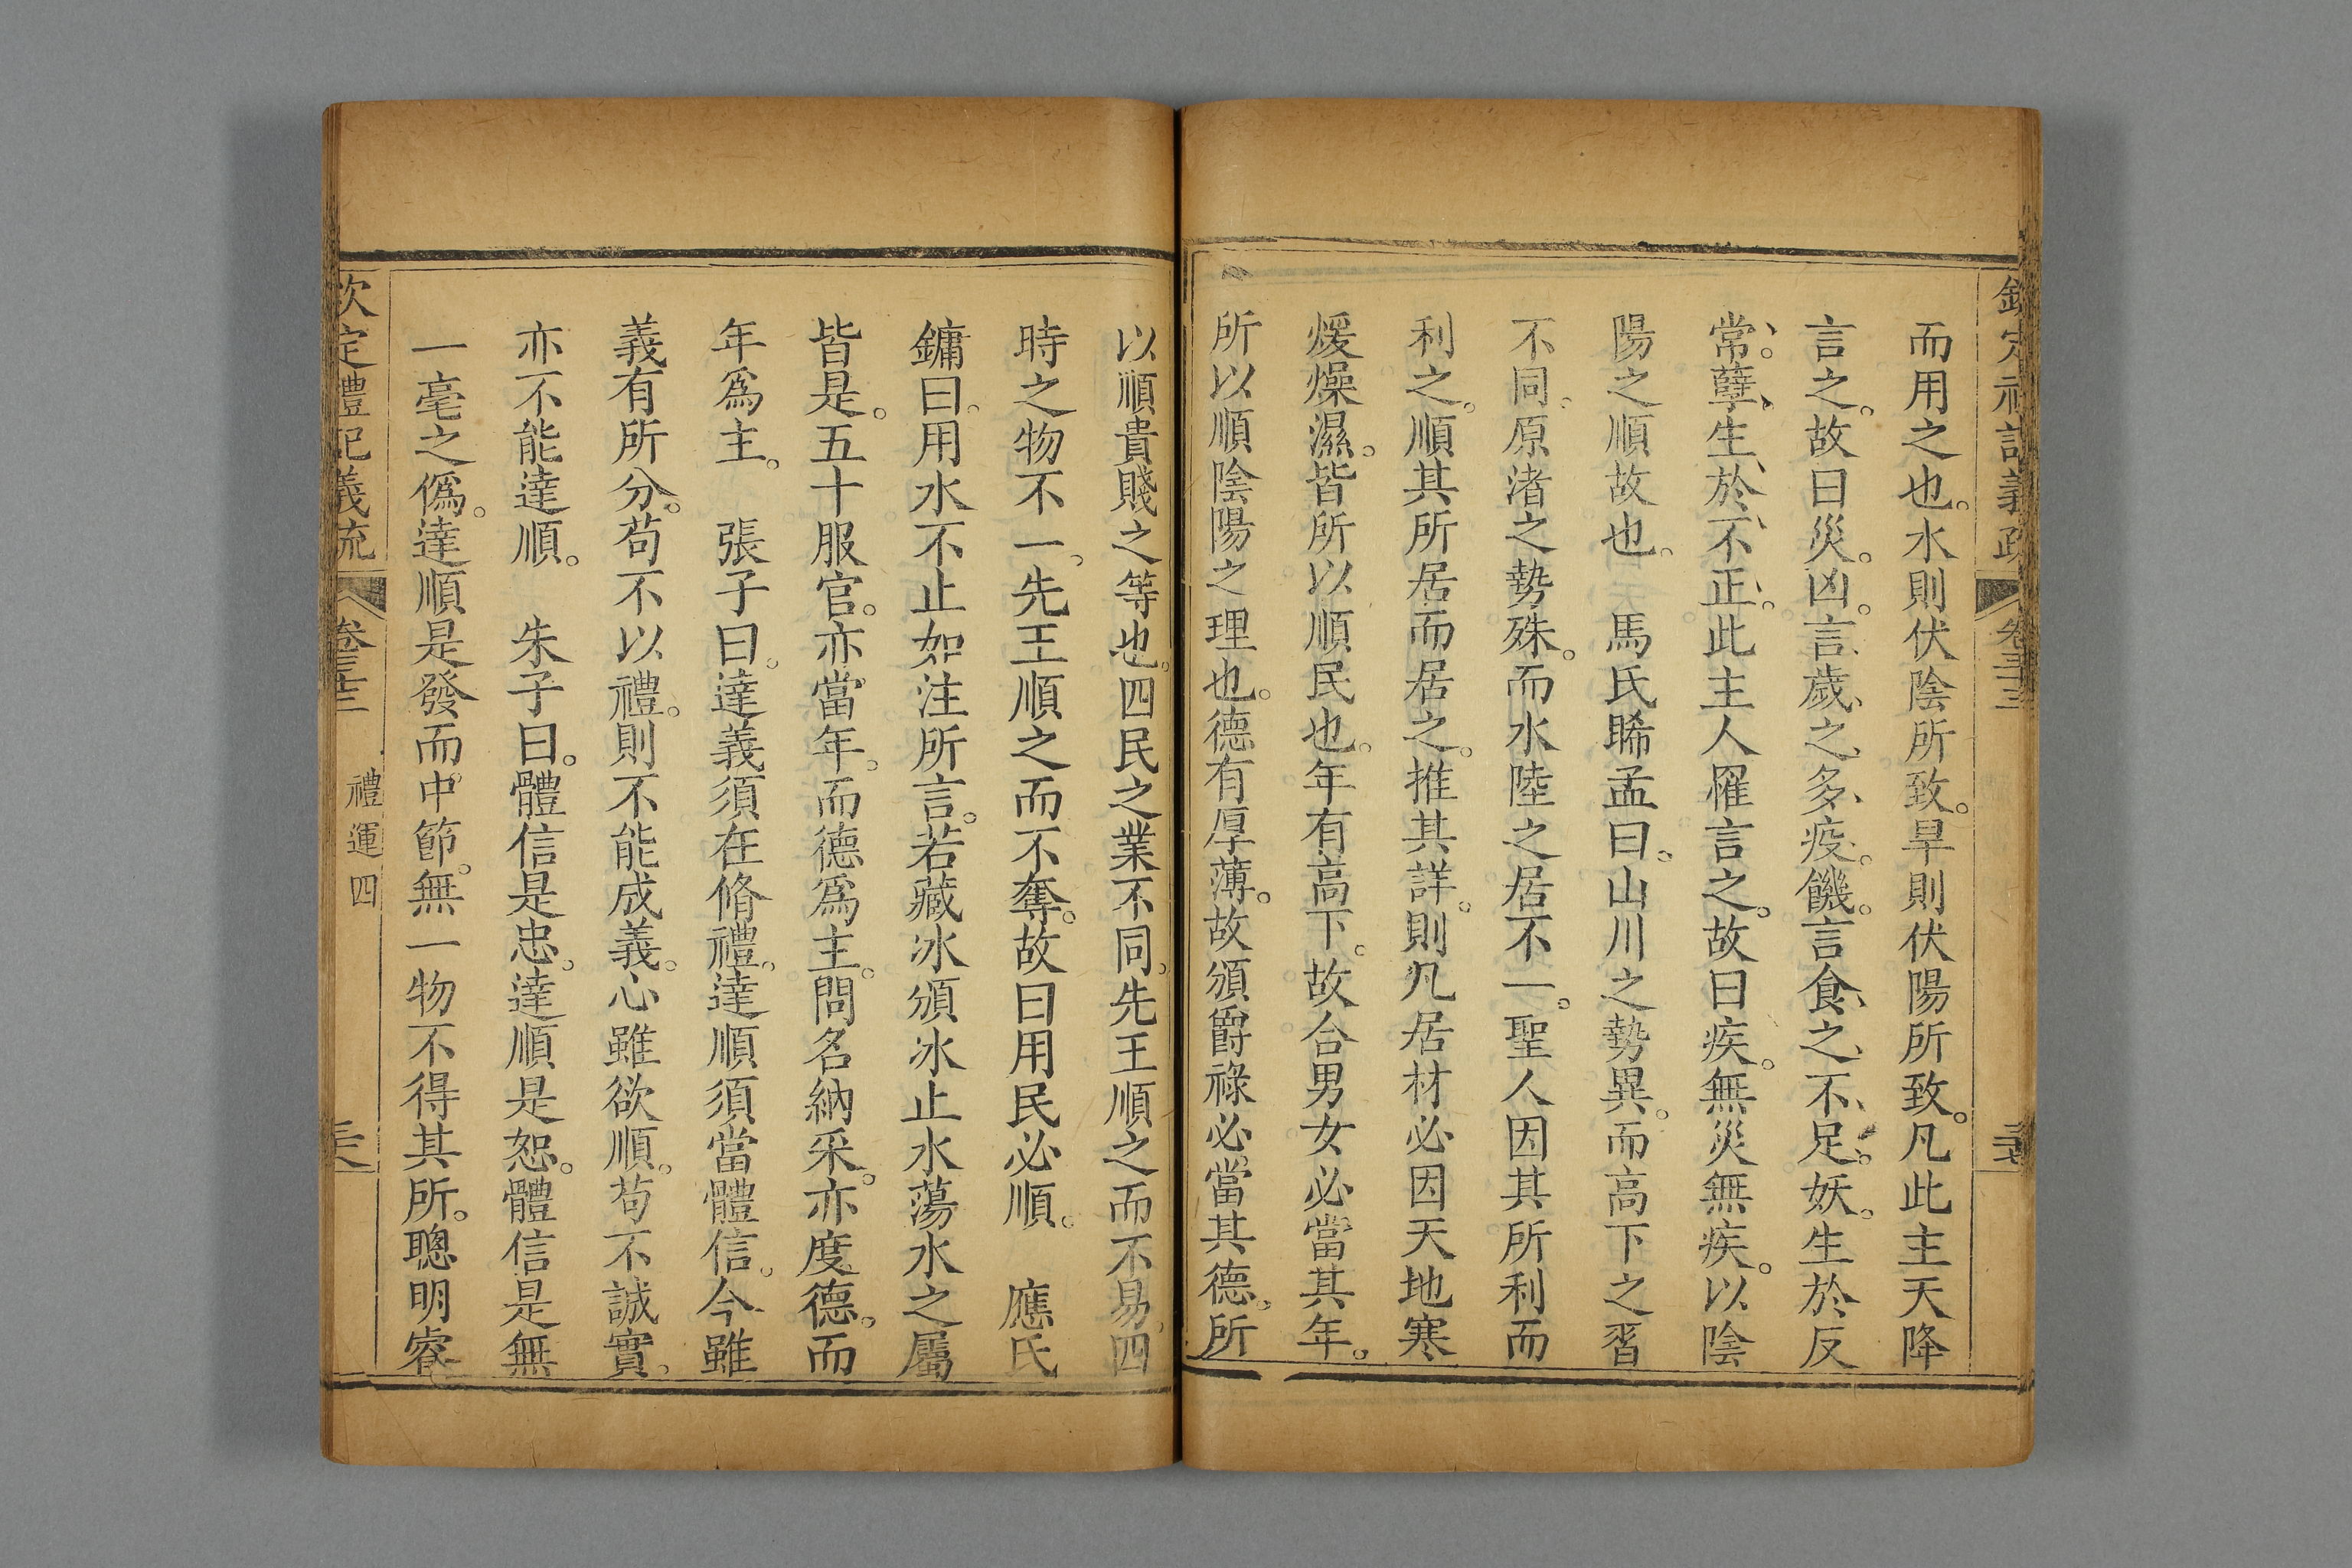 欽定禮記義疏 卷三十三
而用之也。水則伏陰所致。旱則伏陽所致。凡此主天降
言之。故曰災。凶。言歲之多疫。饑。言食之不足。妖。生於反
常。孽生於不正。此主人罹言之。故曰疾。無災無疾。以陰
陽之順故也。　馬氏睎孟曰。山川之勢異。而高下之習
不同。原渚之勢殊。而水陸之居不一。聖人因其所利而
利之。順其所居而居之。推其詳。則凡居材必因天地寒
煖燥濕。皆所以順民也。年有高下。故合男女必當其年。
所以順陰陽之理也。德有厚薄。故頒爵祿必當其德。所
以順貴賤之等也。四民之業不同。先王順之而不易。四
時之物不一。先王順之而不奪。故曰用民必順。　應氏
鏞曰。用水不止如注所言。若藏冰頒冰止水蕩水之屬
皆是。五十服官。亦當年。而德爲主。問名納采。亦度德。而
年爲主。　張子曰。達義須在脩禮。達順須當體信。今雖
義有所分。苟不以禮。則不能成義。心雖欲順。苟不誠實。
亦不能達順。　朱子曰。體信是忠。達順是恕。體信是無
一毫之僞。達順是發而中節。無一物不得其所。聰明睿
欽定禮記義疏 卷三十三 禮運四